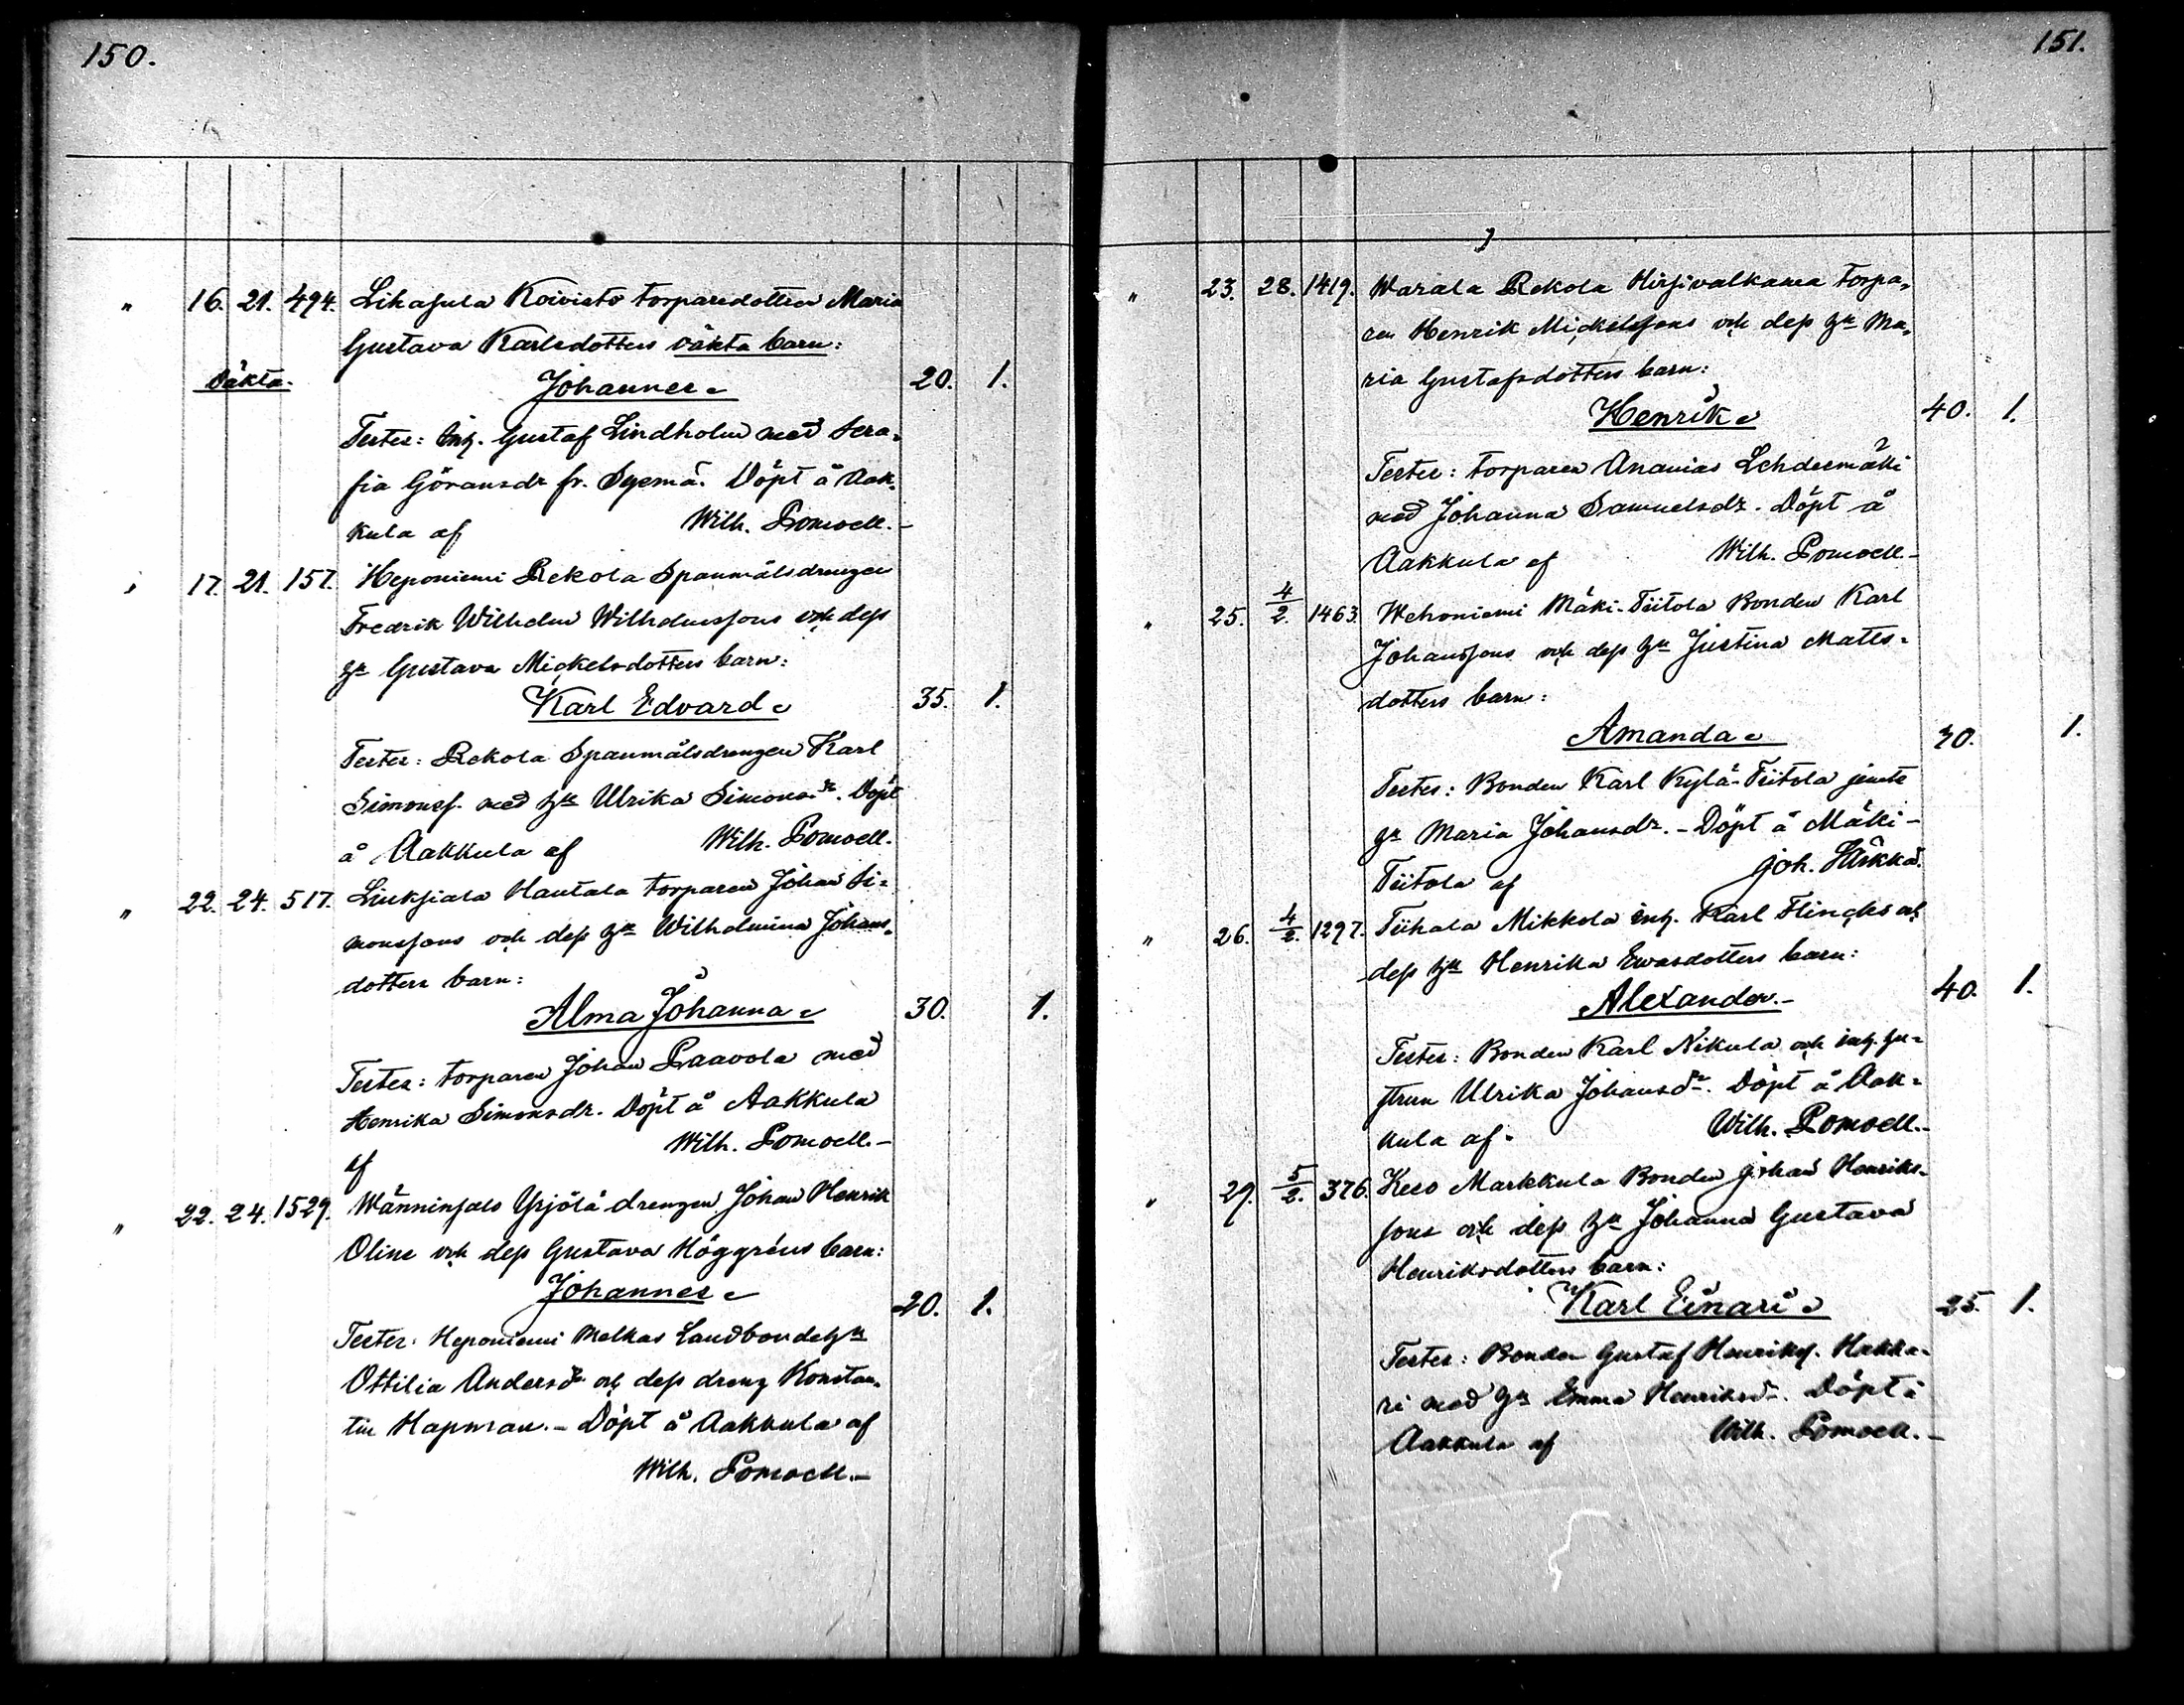 150.
" 16. 21. 494. Likasula Koivisto torparedottren Maria
Gustava Karlsdotters oäkta barn:
Oäkta. Johannes 20. 1.
Testes: Inh. Gustaf Lindholm med Sera-
fia Göransdr fr. Syemä. Döpt å Aak-
kula af Wilh. Pomoell.-
" 17. 21. 157. Heponiemi Rekola Spanmålsdrengen
Fredrik Wilhelm Wilhelmssons och dess
h:u Gustava Mickelsdotters barn:
Karl Edvard 35. 1.
Testes: Rekola Spanmålsdrengen Karl
Simonss. med h:u Ulrika Simonsdr. Döpt
å Aakkula af Wilh. Pomoell.
" 22. 24. 517. Linksiala Hautala torparen Johan Si-
monssons och dess h:u Wilhelmina Johans-
dotters barn:
Alma Johanna 30. 1.
Testes: torparen Johan Paavola med
Henrika Simonsdr. Döpt å Aakkula
af Wilh. Pomoell.-
" 22. 24. 1529. Wänninsalo Yrjölä drengen Johan Henrik
Olins och dess Gustava Höggréns barn:
Johannes 20. 1.
Testes: Heponiemi Melkas Landbondeh:u
Ottilia Andersdr och dess dreng Konstan-
tin Hapman.- Döpt å Aakkula af
Wilh. Pomoell.-
151.
" 23. 28. 1419. Warala Rekola Hirsivalkama torpa-
ren Henrik Mickelssons och dess h:u Ma-
ria Gustafsdotters barn:
Henrik 40. 1.
Testes: torparen Ananias Lehdesmäki
med Johanna Samuelsdr. Döpt å
Aakkula af Wilh. Pomoell.-
" 25. 4/2. 1463. Wehoniemi Mäki-Tiitola Bonden Karl
Johanssons och dess h:u Justina Matts-
dotters barn:
Amanda 30. 1.
Testes: Bonden Karl Kylä-Tiitola jemte
h:u Maria Johansdr.- Döpt å Mäki-
Tiitola af Joh. Häkkä.
" 26. 4/2. 1297. Tiihala Mikkola inh. Karl Flincks och
dess h:u Henrika Ewasdotters barn:
Alexander.- 40. 1.
Testes: Bonden Karl Nikula och inh. hu-
strun Ulrika Johansdr. Döpt å Aak-
kula af. Wilh. Pomoell.-
" 29. 5/2. 376. Keso Markkula Bonden Johan Henriks-
sons och dess h:u Johanna Gustava
Henriksdotters barn:
Karl Einari 25. 1.
Testes: Bonden Gustaf Henrikss. Hakka-
ri med h:u Emma Henriksdr. Döpt å
Aakkula af Wilh. Pomoell.-